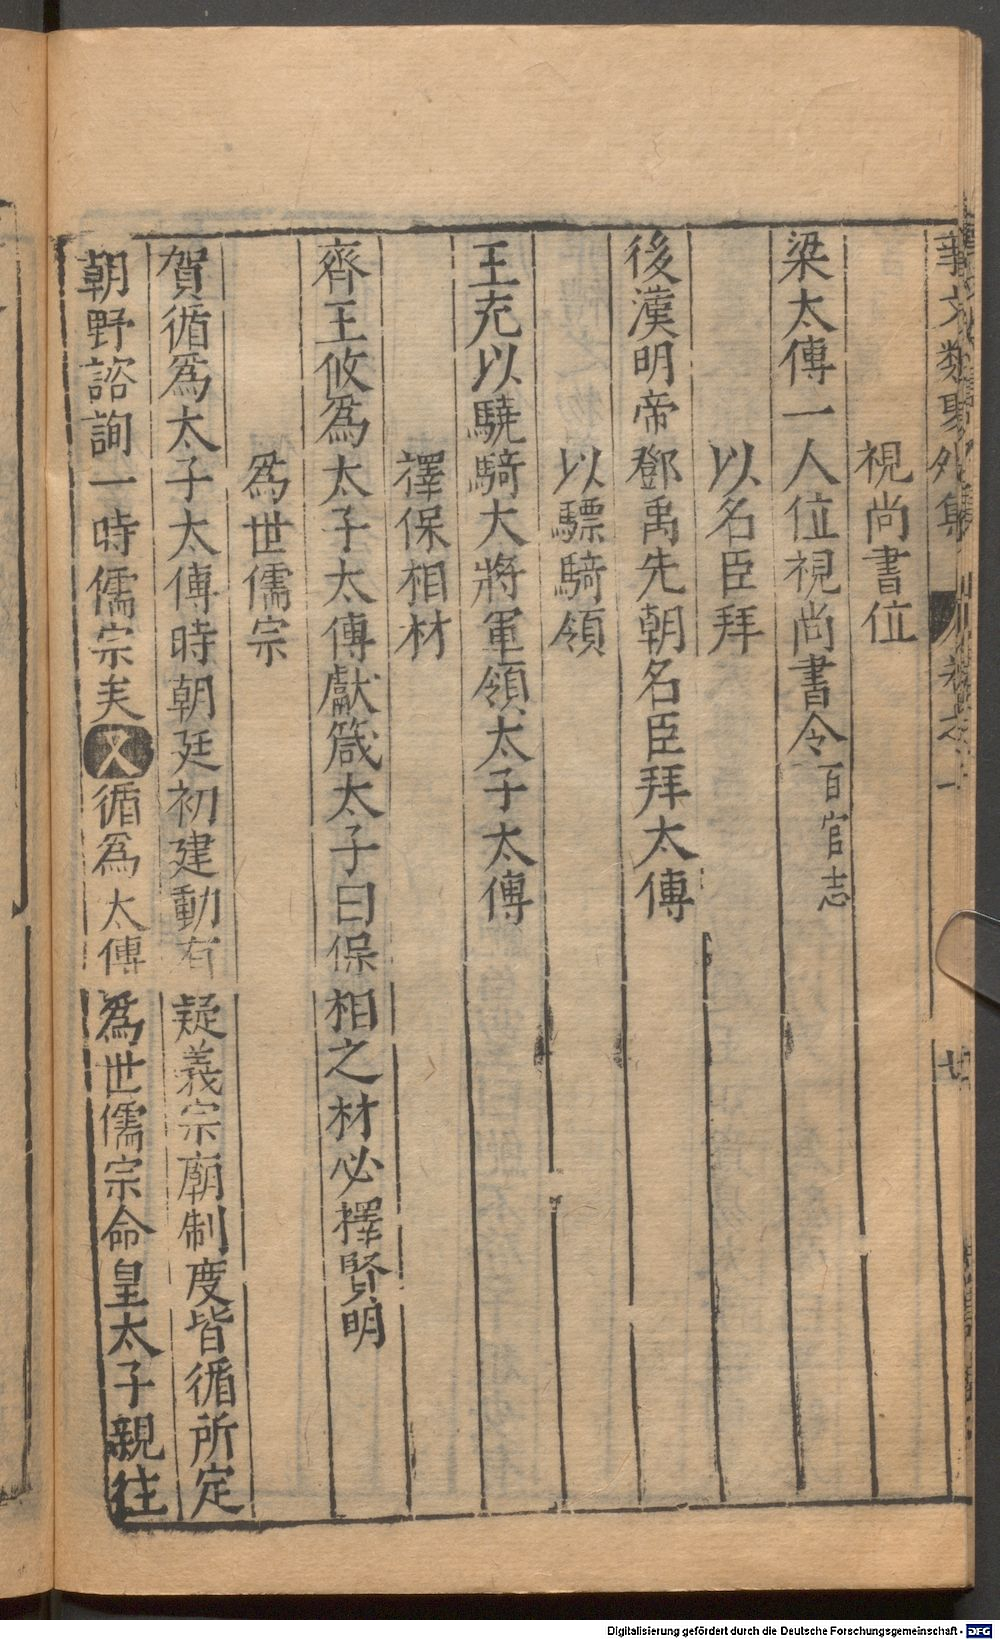 事文類聚外集 卷之一 廿
視尚書位
梁太傅一人位視尚書令百官志
以名臣拜
後漢明帝鄧禹先朝名臣拜太傅
以驃騎領
王充以驍騎大將軍領太子太傅
擇保相材
齊王攸爲太子太傅獻箴太子曰保相之材必擇賢明
爲世儒宗
賀循爲太子太傅時朝廷初建動有疑義宗廟制度皆循所定
朝野諮詢一時儒宗矣又循爲太傅爲世儒宗命皇太子親往
Digitalisierung gefördert durch die Deutsche Forschungsgemeinschaft - DFG